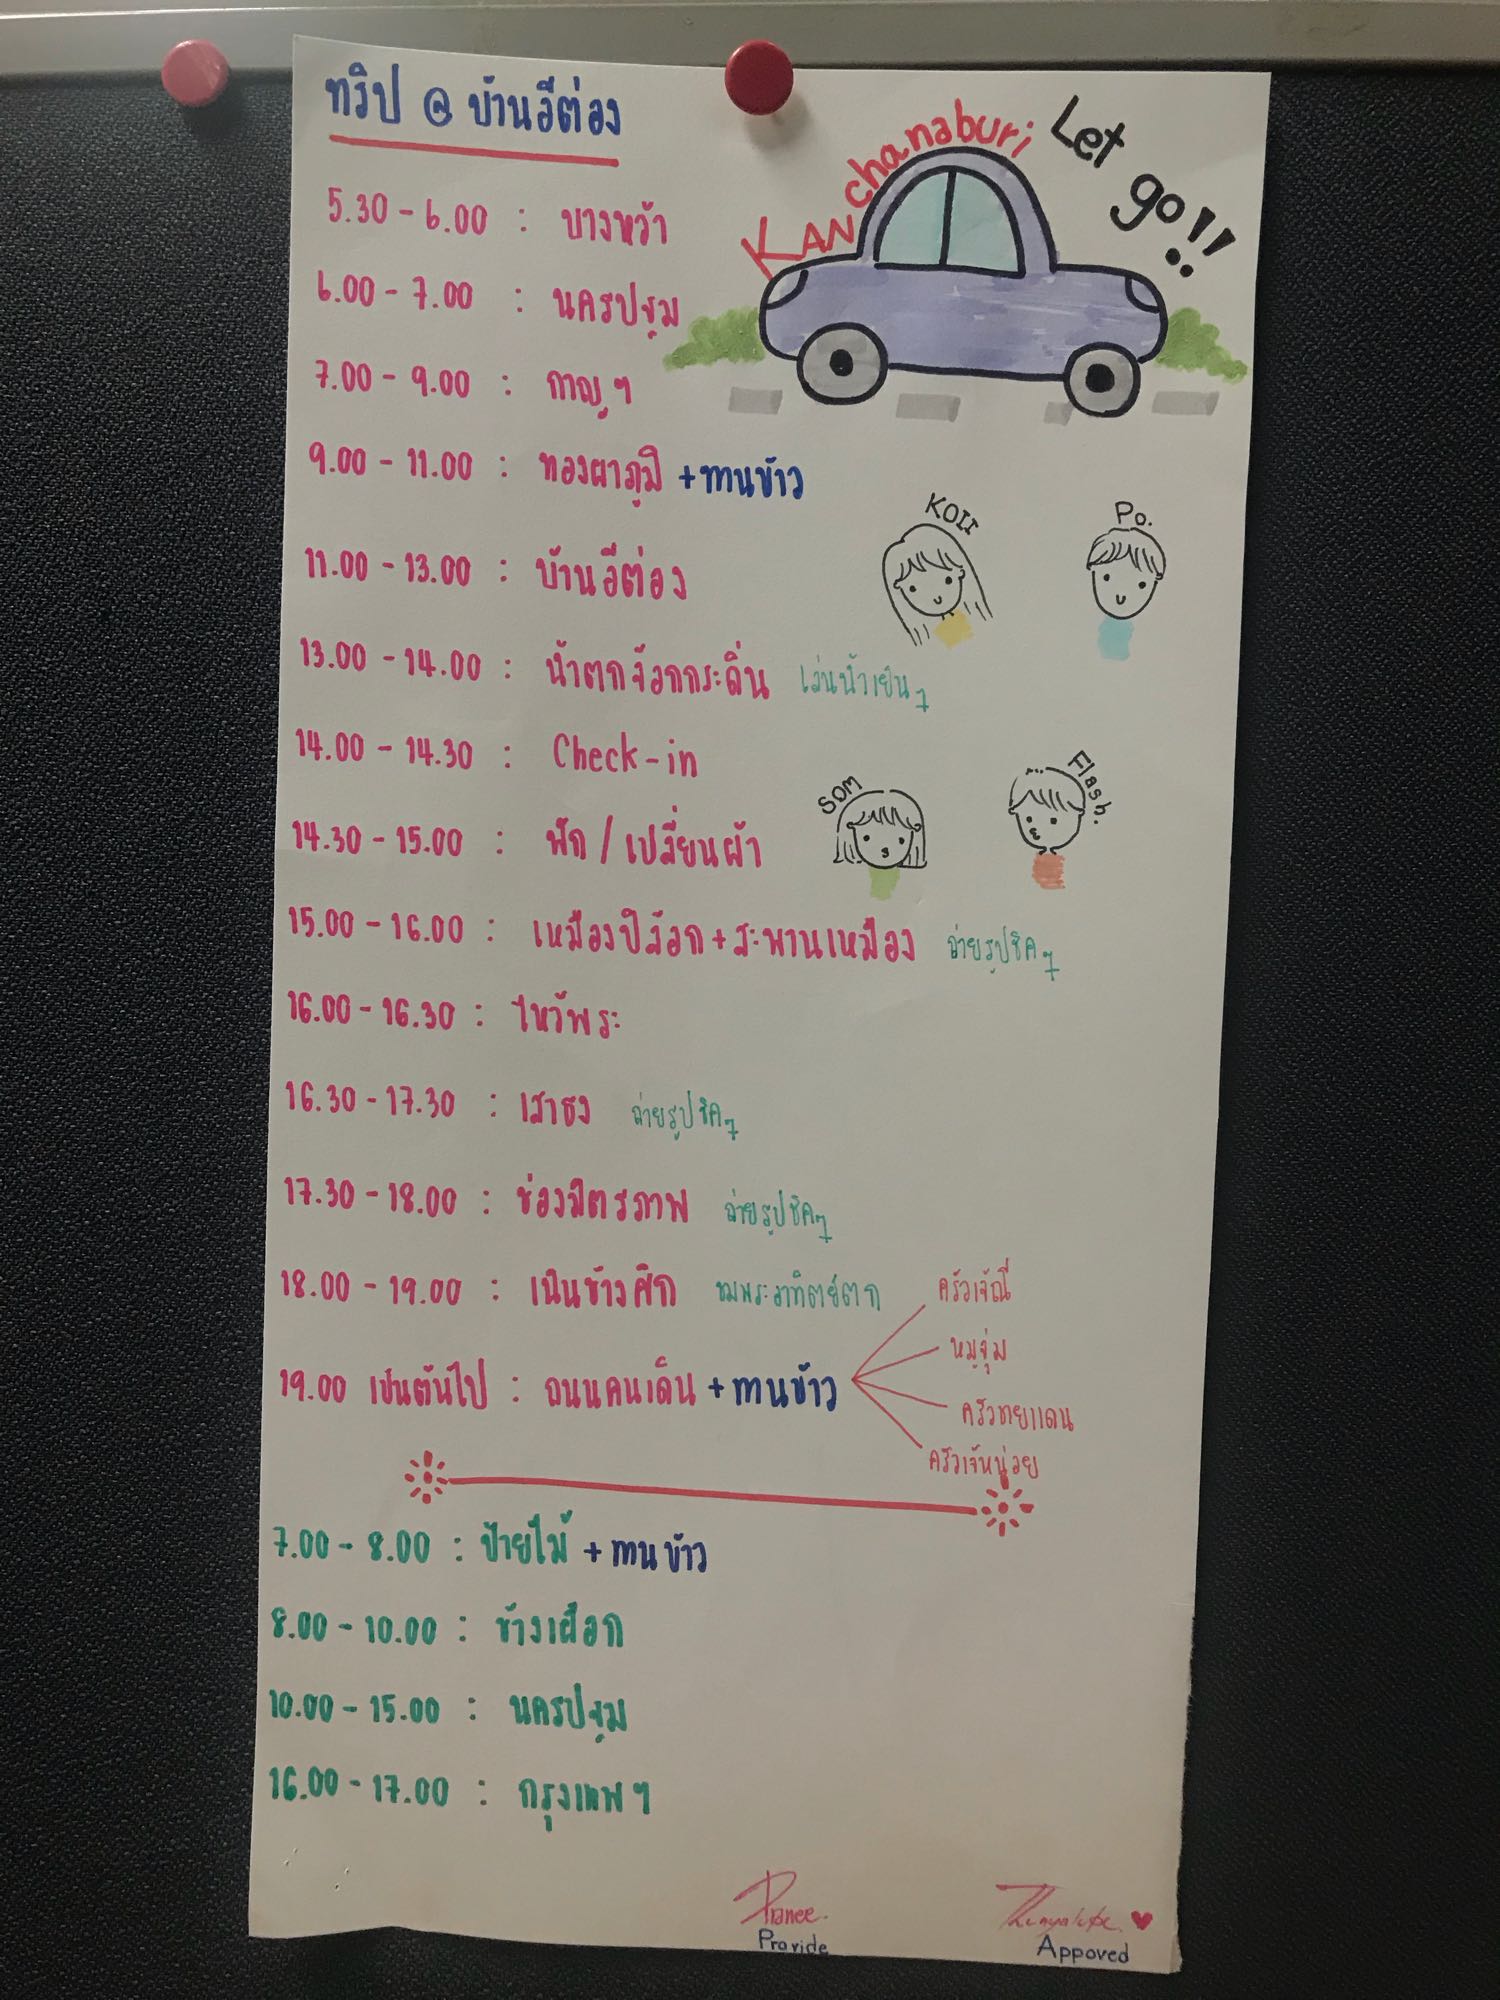 ทริป @ บ้านอีต่อง
KANchanaburi Let go!!
5.30 - 6.00 : บางหว้า
6.00 - 7.00 : นครปฐม
7.00 - 9.00 : กาญฯ
9.00 - 11.00 : ทองผาภูมิ + ทานข้าว
KOII Po.
11.00 - 13.00 : บ้านอีต่อง
13.00 - 14.00 : น้ำตกจ๊อกกระดิ่น เล่นน้ำเย็นๆ
14.00 - 14.30 : Check-in
SOM Flash.
14.30 - 15.00 : พัก / เปลี่ยนผ้า
15.00 - 16.00 : เหมืองปิล๊อก + สะพานเหมือง ถ่ายรูปชิคๆ
16.00 - 16.30 : ไหว้พระ
16.30 - 17.30 : เสาธง ถ่ายรูปชิคๆ
17.30 - 18.00 : ช่องมิตรภาพ ถ่ายรูปชิคๆ
18.00 - 19.00 : เนินช้างศึก ชมพระอาทิตย์ตก
19.00 เป็นต้นไป : ถนนคนเดิน + ทานข้าว
ครัวเจ๊ณี
หมูจุ่ม
ครัวชายแดน
ครัวเจ๊หน่อย
7.00 - 8.00 : ป้ายไม้ + ทานข้าว
8.00 - 10.00 : ช้างเผือก
10.00 - 15.00 : นครปฐม
16.00 - 17.00 : กรุงเทพฯ
Pranee.
Provide Appoved